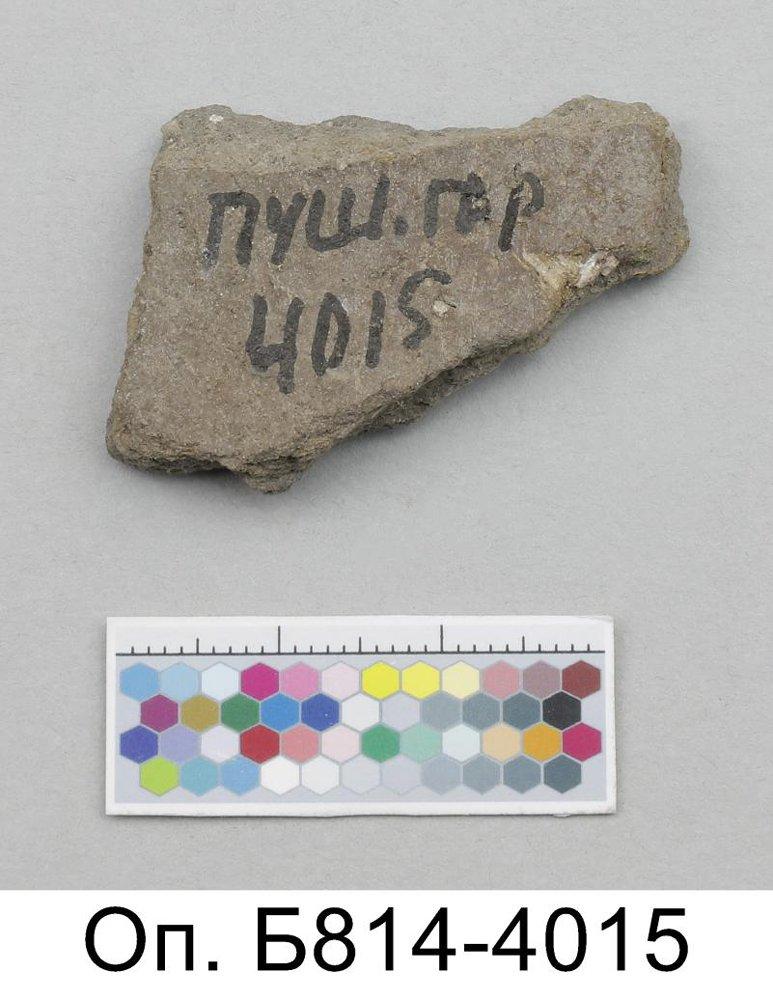 ПУШ.ГОР
4015
Оп. Б814-4015